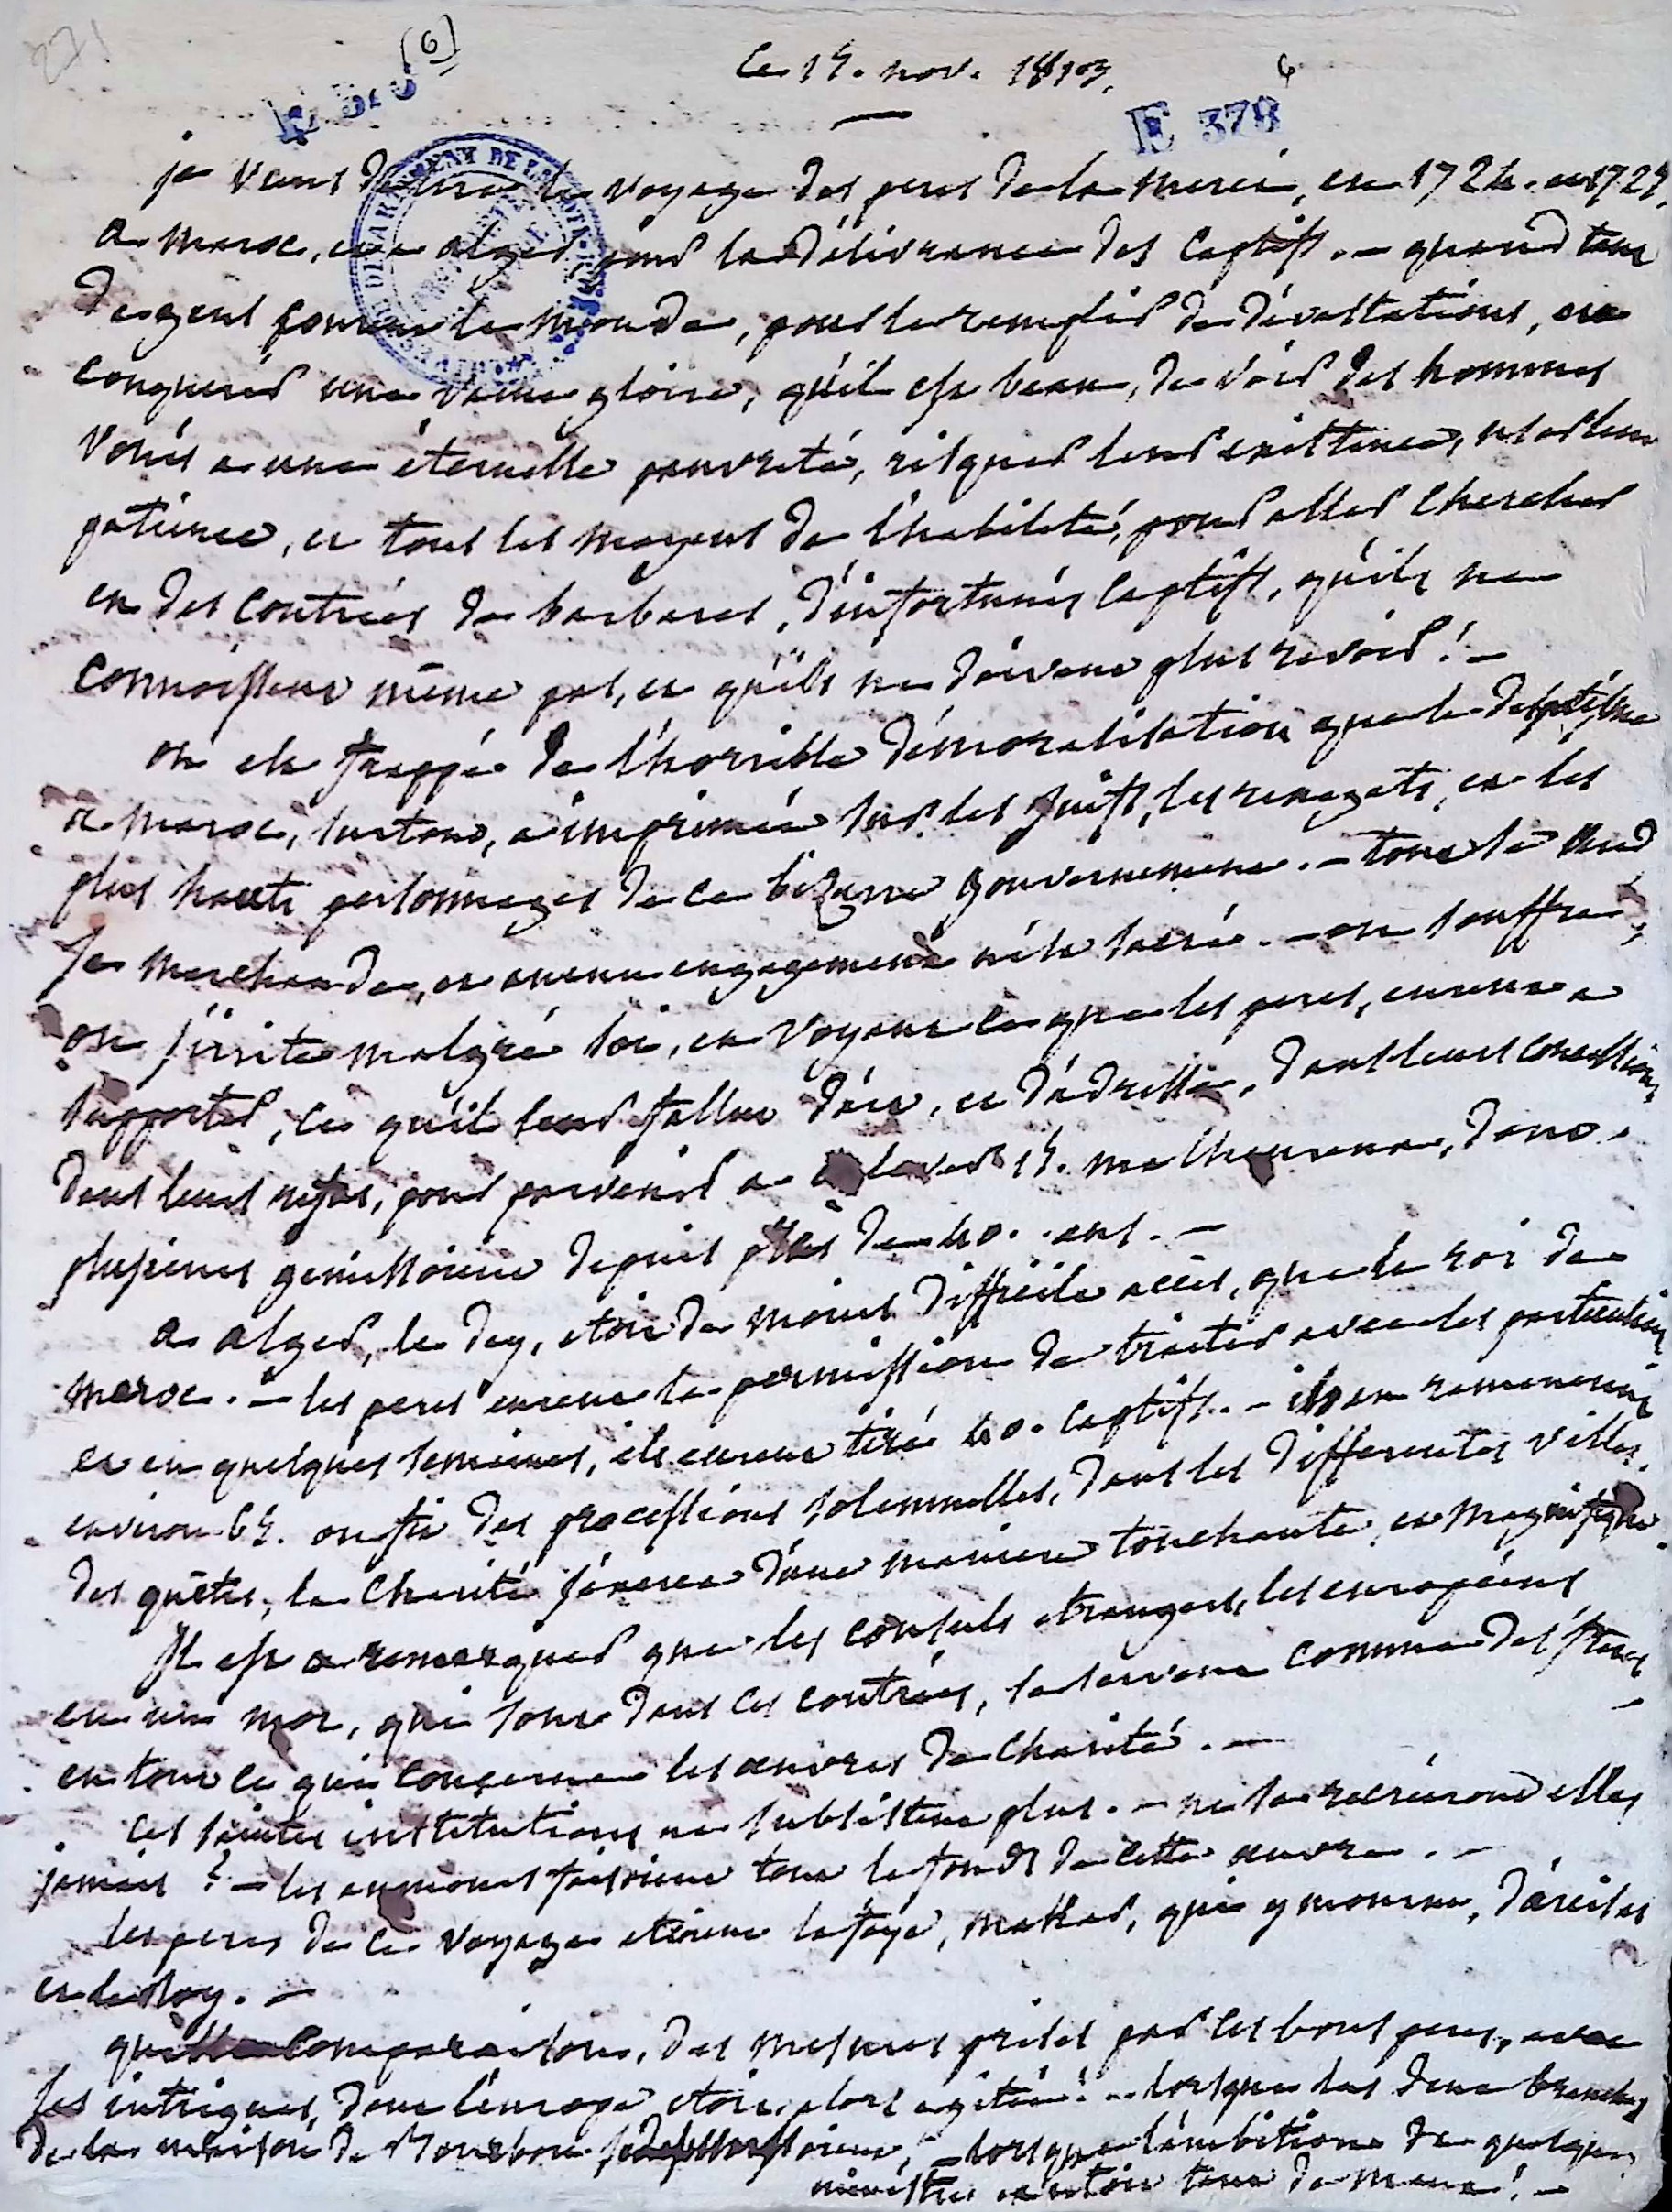 271
(6)
Ce 15. nov. 1813.
6
E 378
E 378
je viens de lire le voyage des peres de la merci, en 1724. et 1725,
a maroc, et a alger pour la délivrance des captifs. – quand tant
de gens courent le monde, pour le remplir de dévastations, et
conquerir une vaine gloire, qu'il est beau, de voir des hommes
voués a une éternelle pauvreté, risquer leur existence, user leur
patience, et tous les moyens de l'habileté, pour aller chercher
en des contrées de barbares, d'infortunés captifs, qu'ils ne
connoissent même pas, et qu'ils ne doivent plus revoir! –
on est frappé de l'horrible démoralisation que le despotisme
a maroc, surtout, a imprimée sur les juifs, les renegats, et les
plus hauts personnages de ce bizarre gouvernement. – tout se vend
se marchande, et aucun engagement n'est sacré. – on souffre,
on s'irrite malgré soi, en voyant ce que les peres, eurent a
supporter, ce qu'il leur fallut d'art, et d'adresse, dans leurs concessions,
dans leurs refus, pour parvenir a enlever 15. malheureux, dont
plusieurs gemissoient depuis plus de 40. ans. –
a alger, le dey, etoit de moins difficile accès, que le roi de
maroc. – les peres eurent la permission de traiter avec les particuliers
et en quelques semaines, ils eurent tiré 40. captifs. – ils en ramenerent
environ 65. on fit des processions solemnelles, dans les differentes villes,
des quêtes, la charité s'exerca d'une maniere touchante et magnifique.
Il est a remarquer que les consuls etrangers, les européens
en un mot, qui sont dans ces contrées, se servent comme des freres
en tout ce qui concerne les œuvres de charité. –
ces saintes institutions ne subsistent plus. – ne se recréeront elles
jamais ? – les aumones faisoient tout le fonds de cette œuvre. –
les peres de ce voyage etoient la faye, mackar, qui y mourut, d'arcisas
et le roy. –
quelle comparaison, des mesures prises par ces bons peres, avec
les intrigues, dont l'europe etoit alors agitée! – lorsque les deux branches
de la maison de Bourbon, – lorsque l'ambition de quelques
ministres excitoit tant de maux! –